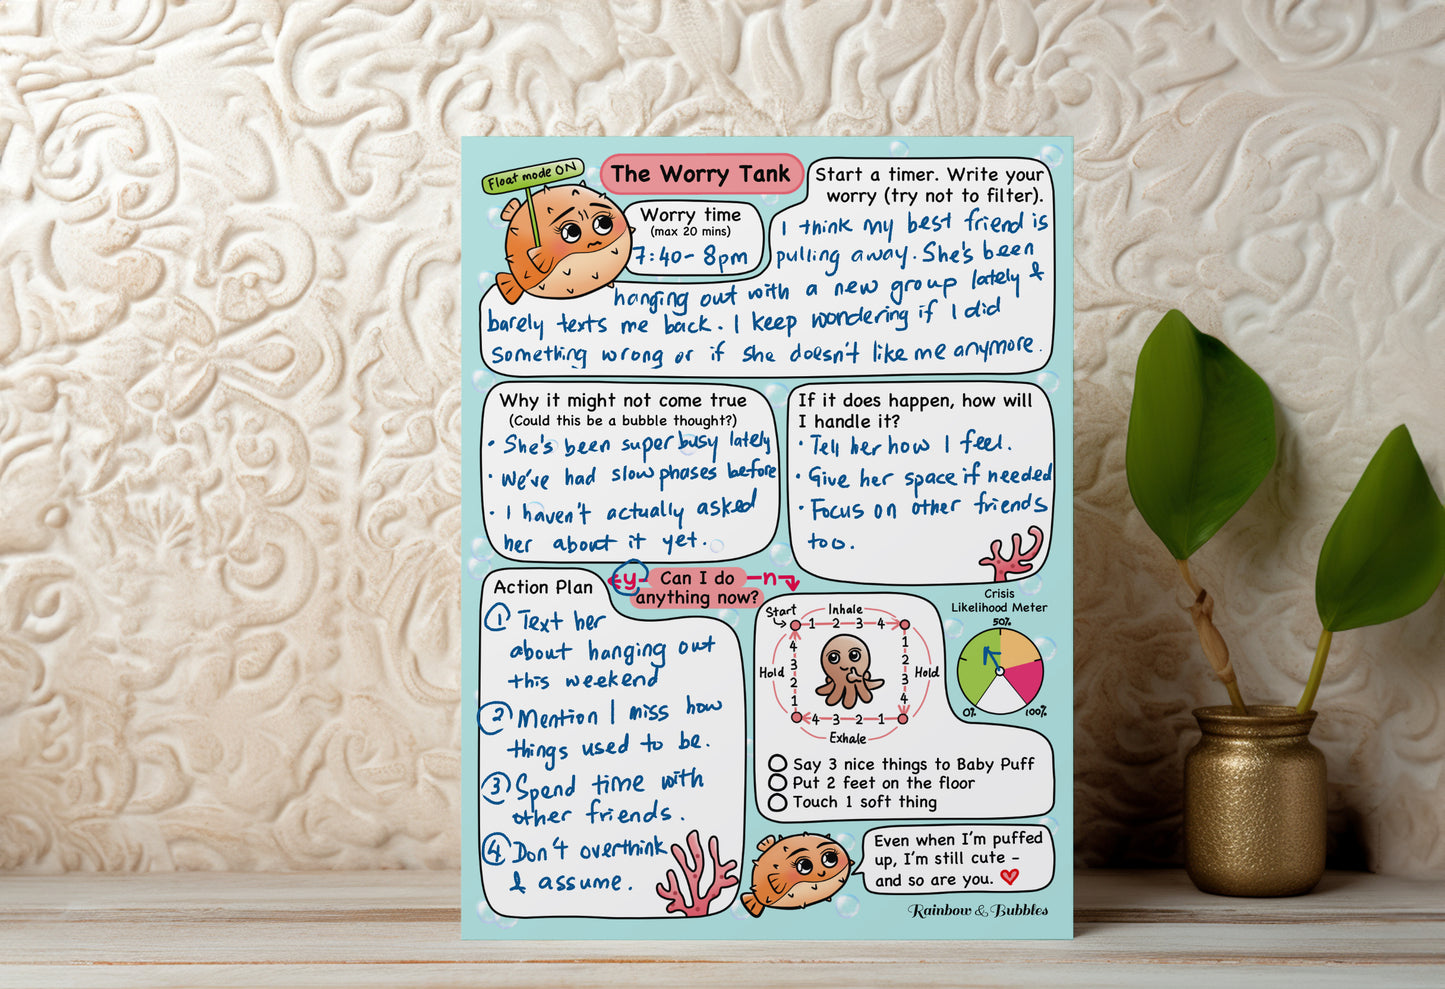 Float mode ON
The Worry Tank
Worry time
(max 20 mins)
7:40- 8pm
Start a timer. Write your
worry (try not to filter).
I think my best friend is
pulling away. She's been
hanging out with a new group lately &
barely texts me back. I keep wondering if I did
something wrong or if she doesn't like me anymore.
Why it might not come true
(Could this be a bubble thought?)
• She's been super busy lately
• We've had slow phases before
• I haven't actually asked
her about it yet.
If it does happen, how will
I handle it?
• Tell her how I feel.
• Give her space if needed
• Focus on other friends
too.
Action Plan
y
Can I do
anything now?
n
① Text her
about hanging out
this weekend
② Mention I miss how
things used to be.
③ Spend time with
other friends.
④ Don't overthink
& assume.
Start
Inhale
1 2 3 4
Hold
1
2
3
4
4 3 2 1
Exhale
Hold
4
3
2
1
Crisis
Likelihood Meter
50%
0%
100%
Say 3 nice things to Baby Puff
Put 2 feet on the floor
Touch 1 soft thing
Even when I'm puffed
up, I'm still cute -
and so are you.
Rainbow & Bubbles